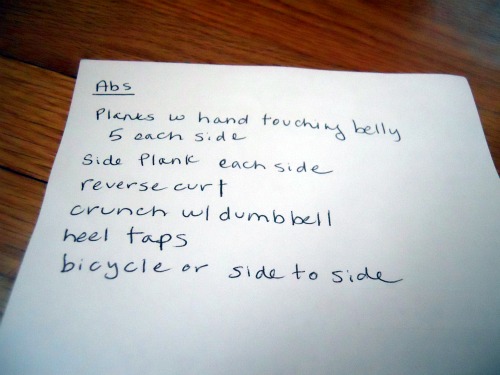 Abs
Planks w hand touching belly
5 each side
Side Plank each side
reverse curl
crunch w/ dumbbell
heel taps
bicycle or side to side